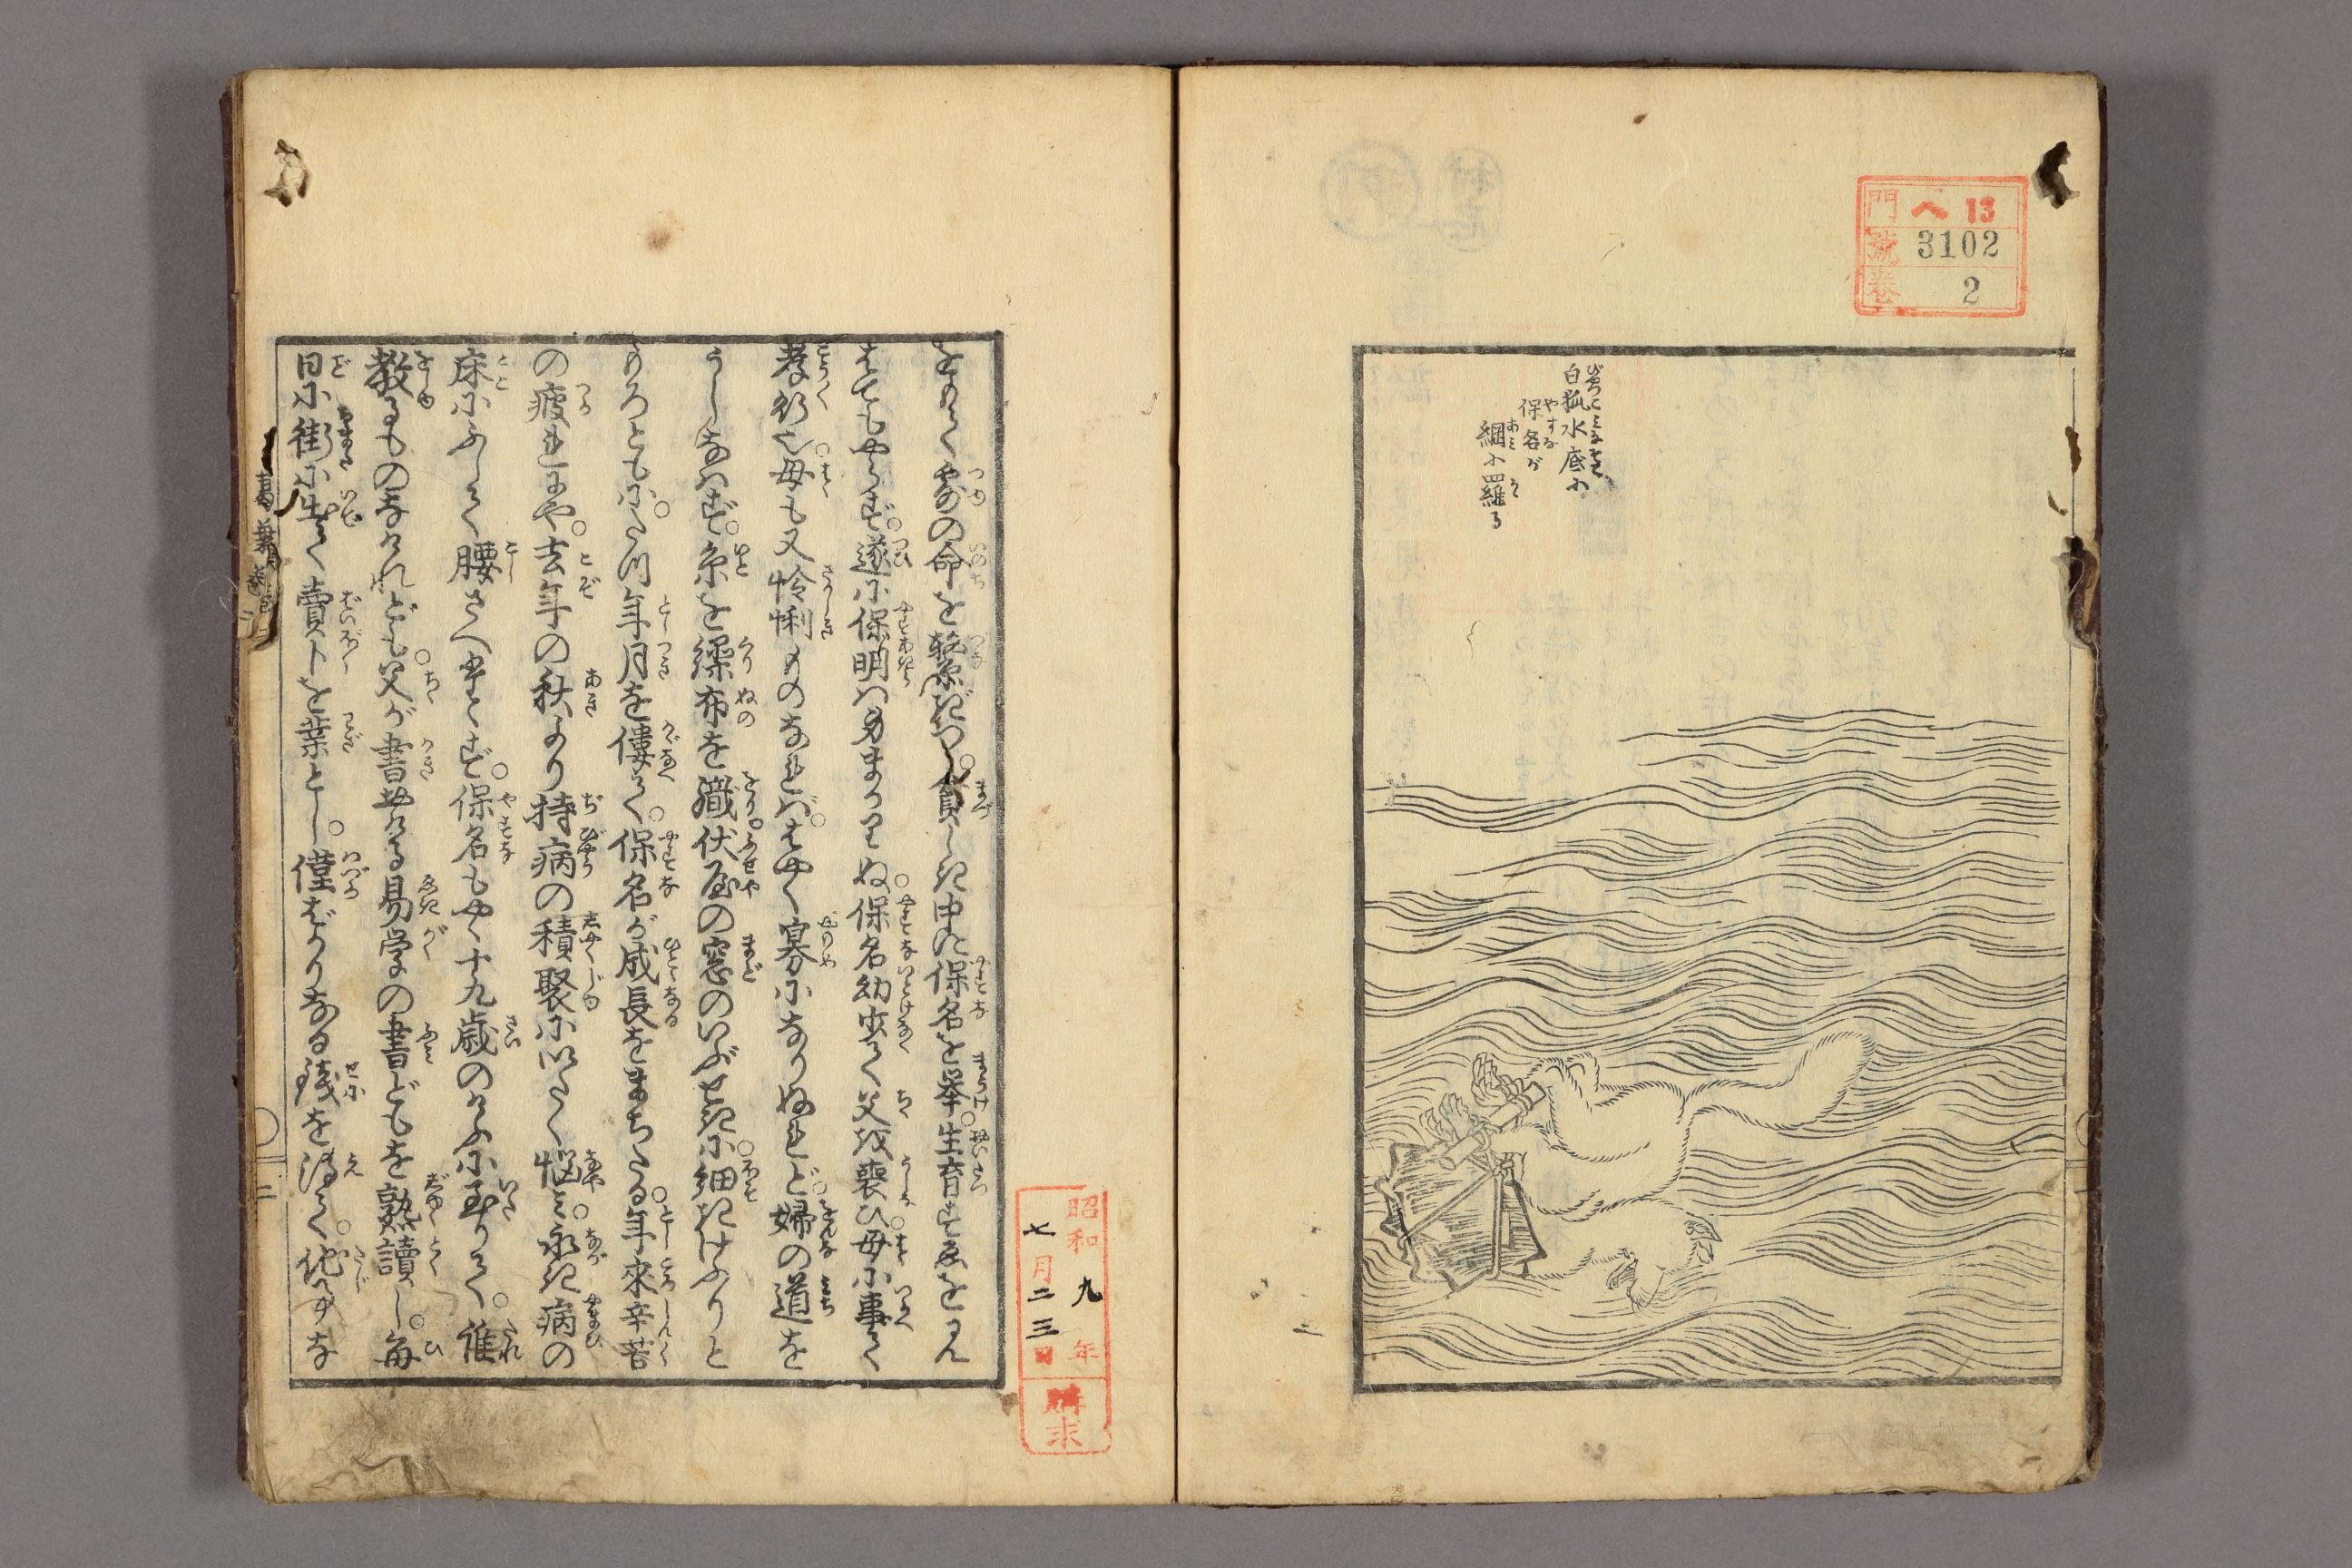 門 ヘ 13
號 3102
卷 2
白狐水底に
保名が
網に罹る
昭和九年
七月二三日
購求
をのく露の命を繋ぎつゝ。貧しき中に保名を挙。生育すゑをみん
はてもやらず。遂に保明は身まかりぬ。保名幼少して父を喪ひ。母に事て
孝行也。母も又怜悧ものなれば。はやく寡になりぬれど。婦の道を
うしなはず。糸を繰布を織。伏屋の窓のいぶせきに。細きけふりと
もろともに。たつ年月を僂て。保名が成長をまちたる。年来辛苦
の疲れにや。去年の秋より持病の積聚にいたく悩み。永き病の
床にふして腰さへたゝず。保名もやく十九歳のけふに至りて。誰
教るものなけれども。父が書おける易学の書どもを熟読し。毎
日に街に出て売卜を業とし。僅ばかりなる銭を得て。他事な
葛葉
二